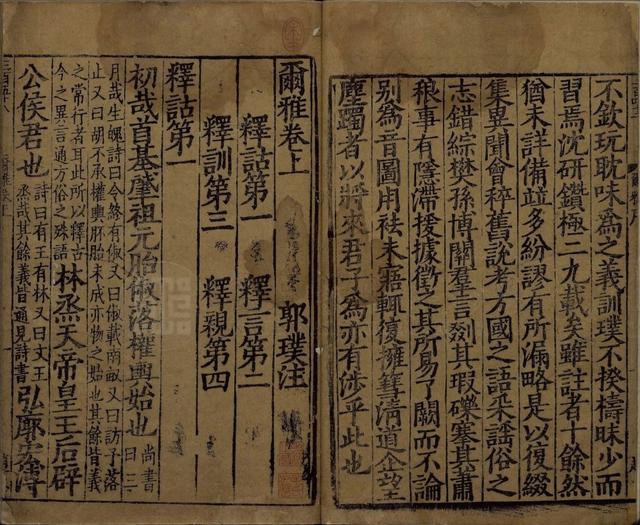 不欽玩耽味為之義訓璞不揆檮昧少而
習焉沈研鑽極二九載矣雖註者十餘然
猶未詳備竝多紛謬有所漏略是以復綴
集異聞會稡舊說考方國之語采謠俗之
志錯綜樊孫博關羣言剟其瑕礫搴其蕭
稂事有隱滯援據徵之其所易了闕而不論
別為音圖用祛未寤輒復擁篲清道企望
塵躅者以將來君子為亦有涉乎此也
爾雅卷上
郭璞注
釋詁第一 釋言第二
釋訓第三 釋親第四
釋詁第一
初哉首基肇祖元胎俶落權輿始也 尚書曰三
月哉生魄詩曰令終有俶又曰俶載南畝又曰訪予落
止又曰胡不承權輿胚胎未成亦物之始也其餘皆義
之常行者耳此所以釋古
今之異言通方俗之殊語 林烝天帝皇王后辟
公侯君也 詩曰有王有林又曰文王
烝哉其餘義皆通見詩書 弘廓宏溥